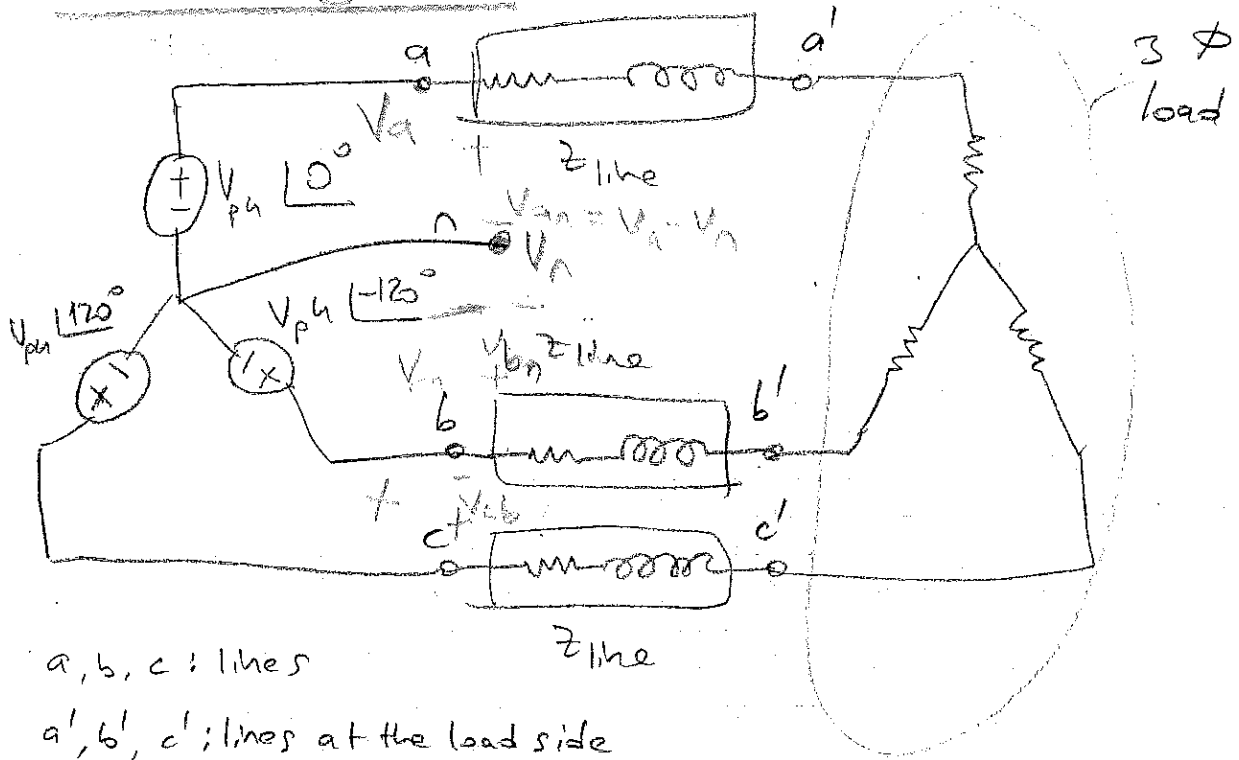 3 Φ
load
a
a'
Va
+
Zline
+
-
Vph ∠0°
n
Van = Va - Vn
Vn
Vph ∠120°
Vph ∠-120°
Vbn
Zline
+
b
b'
-
+
Vcb
+
c
c'
Zline
a, b, c : lines
a', b', c' : lines at the load side